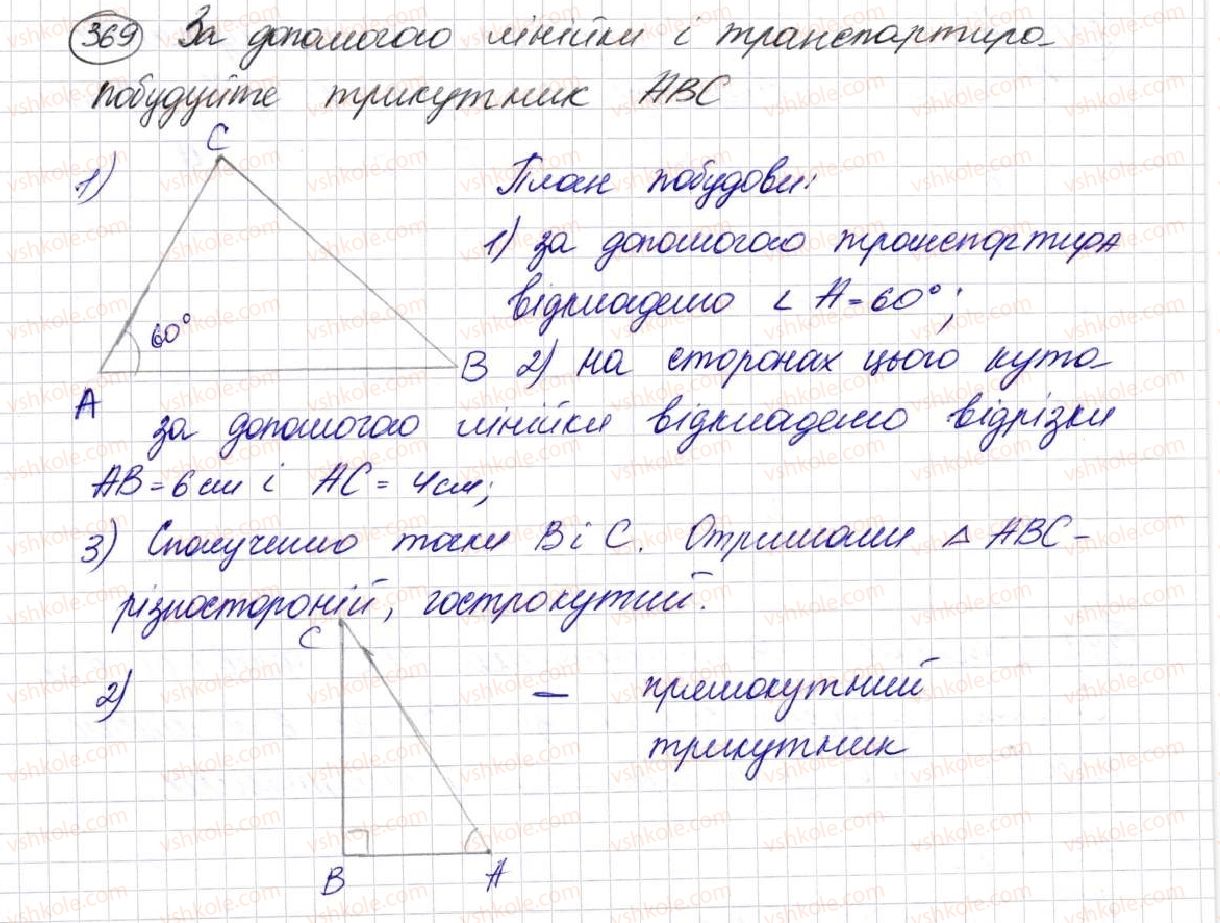 369 За допомогою лінійки і транспортира
побудуйте трикутник ABC
C
1)
План побудови:
1) за допомогою транспортира
60°
відкладемо ∠ A = 60°;
A
B
2) на сторонах цього кута
за допомогою лінійки відкладемо відрізки
AB = 6 см і AC = 4 см;
3) Сполучимо точки B і C. Отримали △ ABC –
різносторонній, гострокутий.
C
2)
– прямокутний
трикутник
B
A
vshkole.com